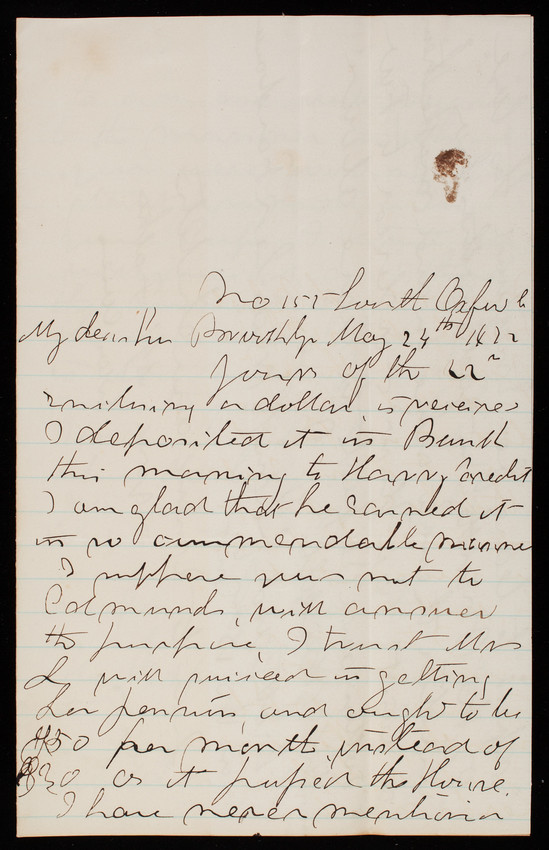 No 155 South Oxford
My dear Brooklyn May 24th 1872
Yours of the 22d
enclosing a dollar, is received
I deposited it in Bank
this morning to Harry's credit
I am glad that he earned it
in so commendable manner
I suppose your note to
Edmunds, will answer
the purpose, I trust Mrs
L will succeed in getting
her pension, and ought to be
$50 per month, instead of
$30 as it passed the House.
I have never mention